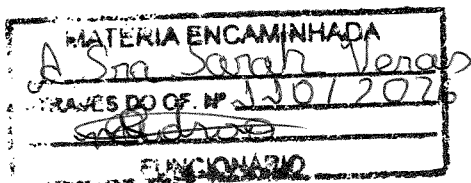 MATERIA ENCAMINHADA
A Sra Sarah Veras
TRAVES DO OF. Nº 110/2026
FUNCIONARIO